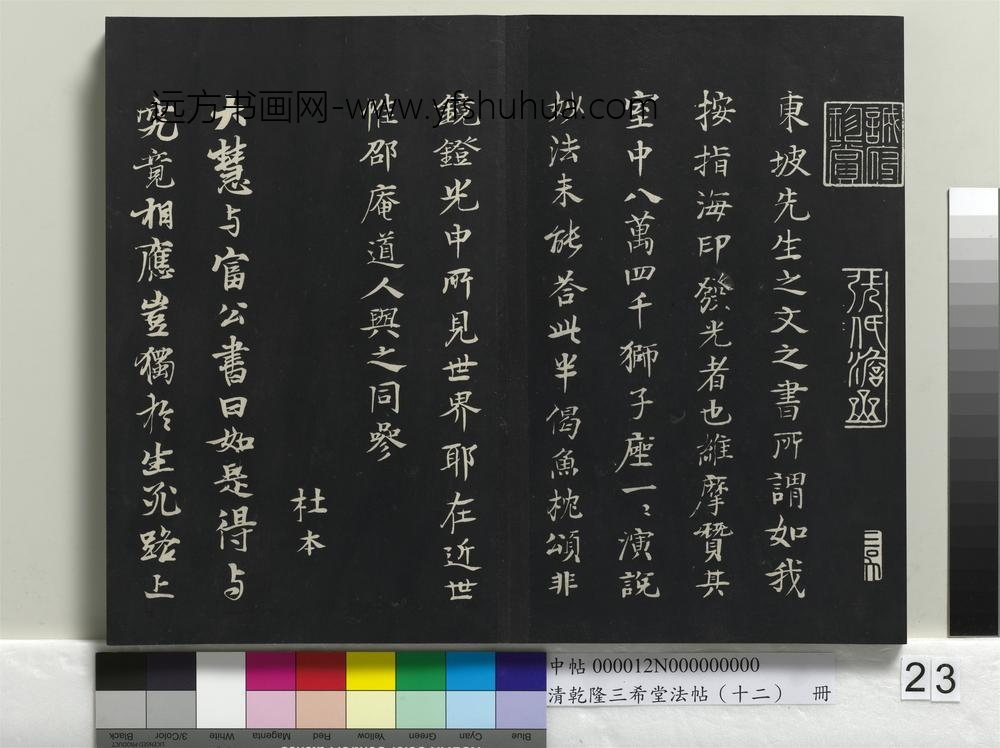 東坡先生之文之書所謂如我
按指海印發光者也維摩賢其
室中八萬四千獅子座一〻演說
妙法未能荅此半偈魚枕頌非
鏡鐙光中所見世界耶在近世
惟邵庵道人與之同參
杜本
大慧与富公書曰如是得与
究竟相應豈獨於生死路上
远方书画网-www.yfshuhua.com
中帖 000012N000000000
清乾隆三希堂法帖（十二） 冊
23
Black
3/Color
White
Magenta
Red
Yellow
Green
Cyan
Blue